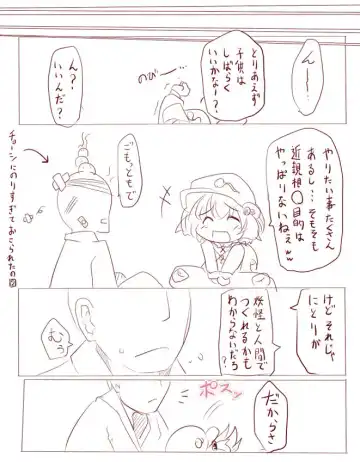 ん~…
とりあえず
子供は
しばらく
いいかなー?
のびー…
ん?
いいんだ?
やりたい事たくさん
あるし…そもそも
近親相〇目的は
やっぱりないねぇww
ごもっともで
チョーシにのりすぎておこられたの図
けど それじゃ
にとりが
妖怪と人間で
つくれるかも
わからないだろ?
むぅ
だからさ
ポスッ